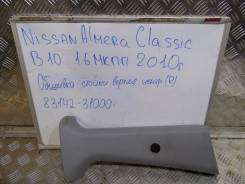 Nissan Almera Classic
B10 1.6 мкпп 2010г
Обшивка стойки верхняя (R)
83142-31000.